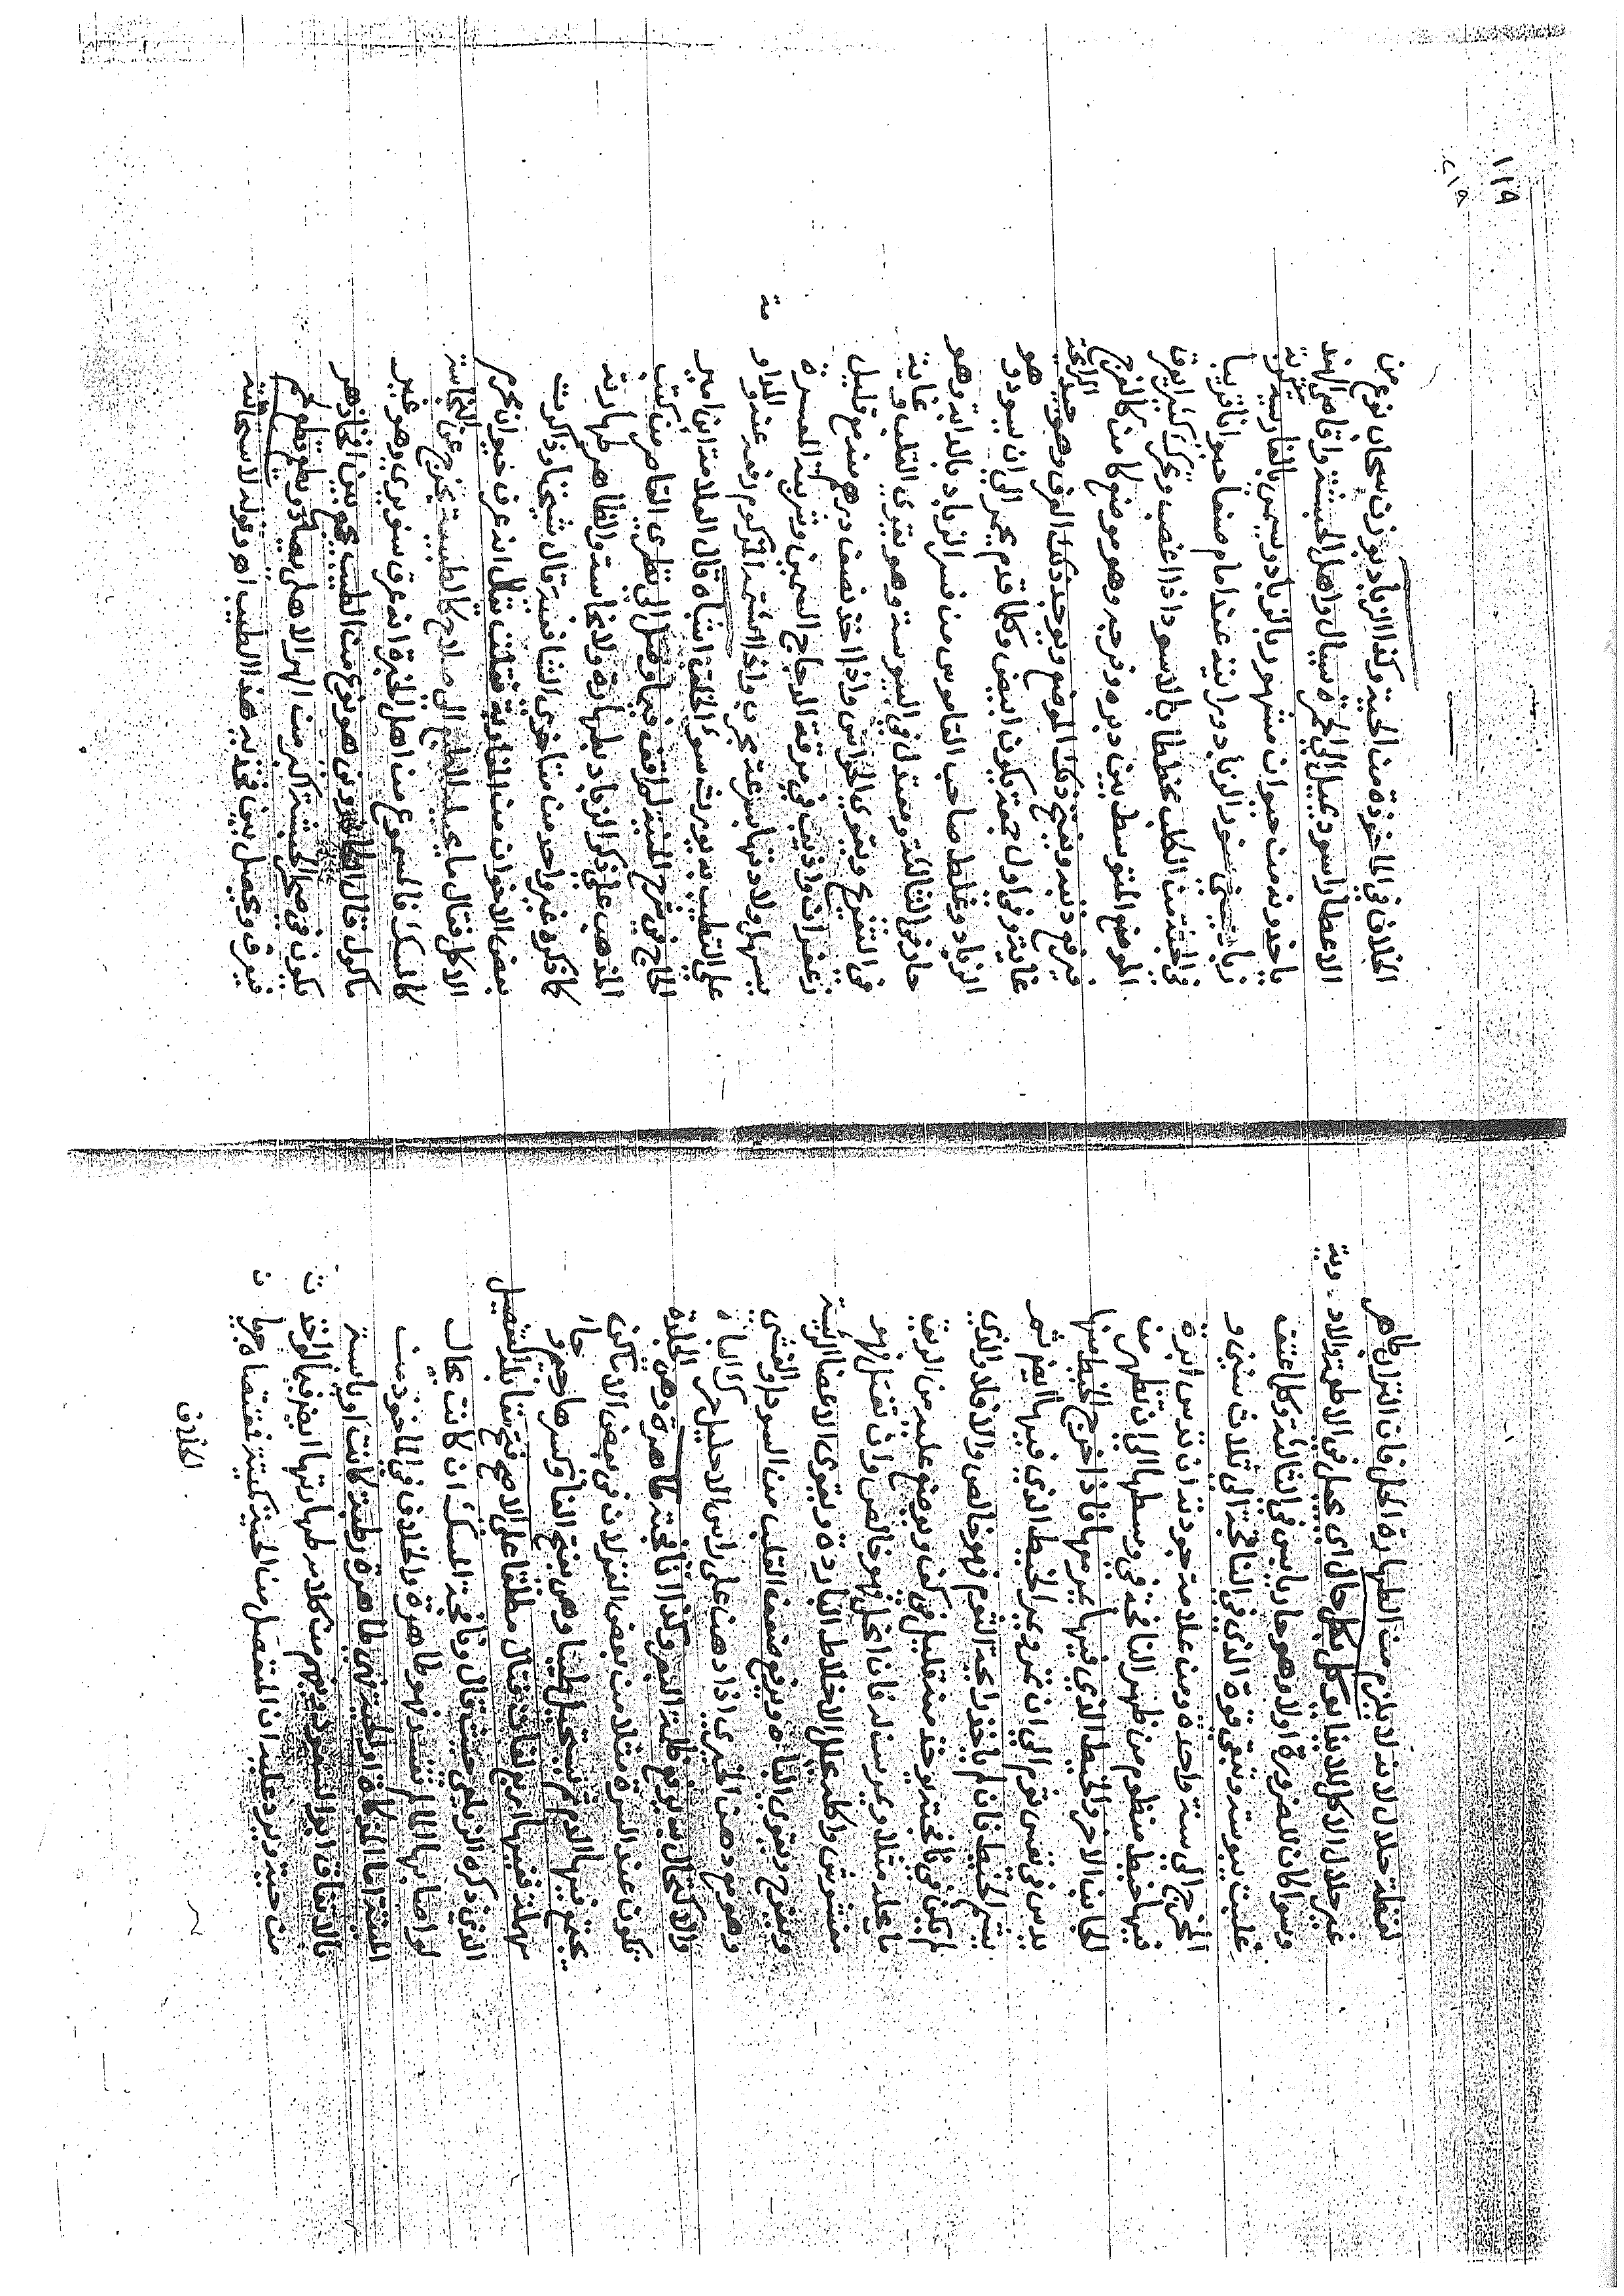 لفظة حلال لانه لا يلزم من الطهارة الحل فان التراب طاهر
غير حلال الاكل يوكل بكل حال اي يحل في الاطعمة والادوية
وسوا كان للضرورة اولا وهو حار يابس في الثالثة وكلما عتق
غلبت يبوسته وتبقى قوة الذي في النافجة الى ثلاث سنين و
المخرج الى سنة واحدة ومن علامة جودته ان تدس ابرة
فيها خيط من ظهر النافجة في وسطها الى ان تظهر من
الجانب الاخر والخيط الذي فيها فاذا اخرج الخيط منها
يدس في نفس ثوم الى ان الخيط الذي فيها ايضا ثم
يشم الخيط فان لم ياخذ رايحة الثوم فهو خالص والا فلا والذي
لم يكن في نافجته يوخذ منه قليل في كف ويوضع عليه من الريق
مثلا فان انحل فهو خالص وان تفتل فهو
مغشوش واكله يحلل الاخلاط الباردة ويقوي الاعضا الرئيسة
ويفرح ويقوي الباه وينفع ضعف القلب من السودا والغشي
وهو مع دهن الخيري اذا دهن على راس الاحليل حرك الباه
والاكتحال به ينفع ظلمة البصر وكذا نافجته طاهرة وهي الجلدة
تكون عند السرة مثلا من بعض الغزلان في بعض الاماكن
يجتمع فيها الدم ثم يستحيل طيبا وهي بفتح الفا وكسرها وجيم و حا
مهملة ففيها اربع لغات فقال مطلقا على الاصح بلا تفصيل
الذي ذكره الزيلعي حيث قال ونافجة المسك ان كانت بحال
لو اصابها الما لم تفسد فهو طاهرة والخلاف في الماخوذ من
الميتة اما المذكاة فهي طاهرة رطبة كانت او يابسة
بالاتفاق ابو السعود يفهم من كلامه طهارتها ايضا فيما لو اخذت
من حية ويرد عليه ان المنفصل من الحية كميتة فمقتضاه جريان
الخلاف
١١٩
٢١٩
الخلاف في الماخوذة من الحية وكذا الزباد بوزن سحاب نوع من
الاعطار اسود يميل الى الحمرة سيال واهل الحبشة واقاصي الهند
ياخذونه من حيوان مشهور بالزباد ويسمى بالفارسية كربة
زباد يعني سنور الزباد ورايته عند امام صنعا حيوانا قريبا
في الجثة من الكلب مخططا بالاسود اذا اغضب وحرك كثيرا يعرق
الموضع المتوسط بين دبره وفرجه وهو موضع كامن كالفرج
فيرفع ذنبه ويفتح ذلك الموضع ويوجد ذلك العرق وهو جيد الرايحة
غاية وفي اول يكون ابيض وكلما قدم يحمر الى ان يسود وهو
الزباد وغلط صاحب القاموس من فسر الزباد بالدابة وهو
حار في الثالثة ومعتدل في اليبوسة وهو يقوي القلب وغاية
في التفريح ويقوي الحواس واذا اخذ نصف درهم منه مع قليل
زعفران واذيب في مرقة الدجاج السمين وشربته المعسرة
يسهل ولادتها بسرعة مجرب واذا شمه المزكوم نفعه عند والمداومة
على التطيب به يورث سوء الخلق انتباه قال العلامة ابن امير
الحاج في شرح المنية لم اقف فيما وصل الى نظري القاصر من كتب
المذهب على ذكر الزباد بطهارة ولا نجاسة والظاهر طهارته
كما ذكره غير واحد من متاخري الشافعية قال شيخنا وذكرت
بعض الاخوان من المغاربة فقلت يقال انه عرق حيوان محرم
الاكل فقال ما يحيله الطبع الى صلاح كالطيبية يخرج عن النجاسة
كالمسك فالمسموع من اهل الخبرة انه عرق سنور بري وهو غير
ماكول قال هو نوع من الطيب يجمع بين افخاذ هر
يكون في صحرا الحبشة اكبر من الهر الاهلي يصاد ويطعم قطع لحم
فيعرق ويحصل بين فخذيه هذا الطيب اهـ وقوله لاستحالته